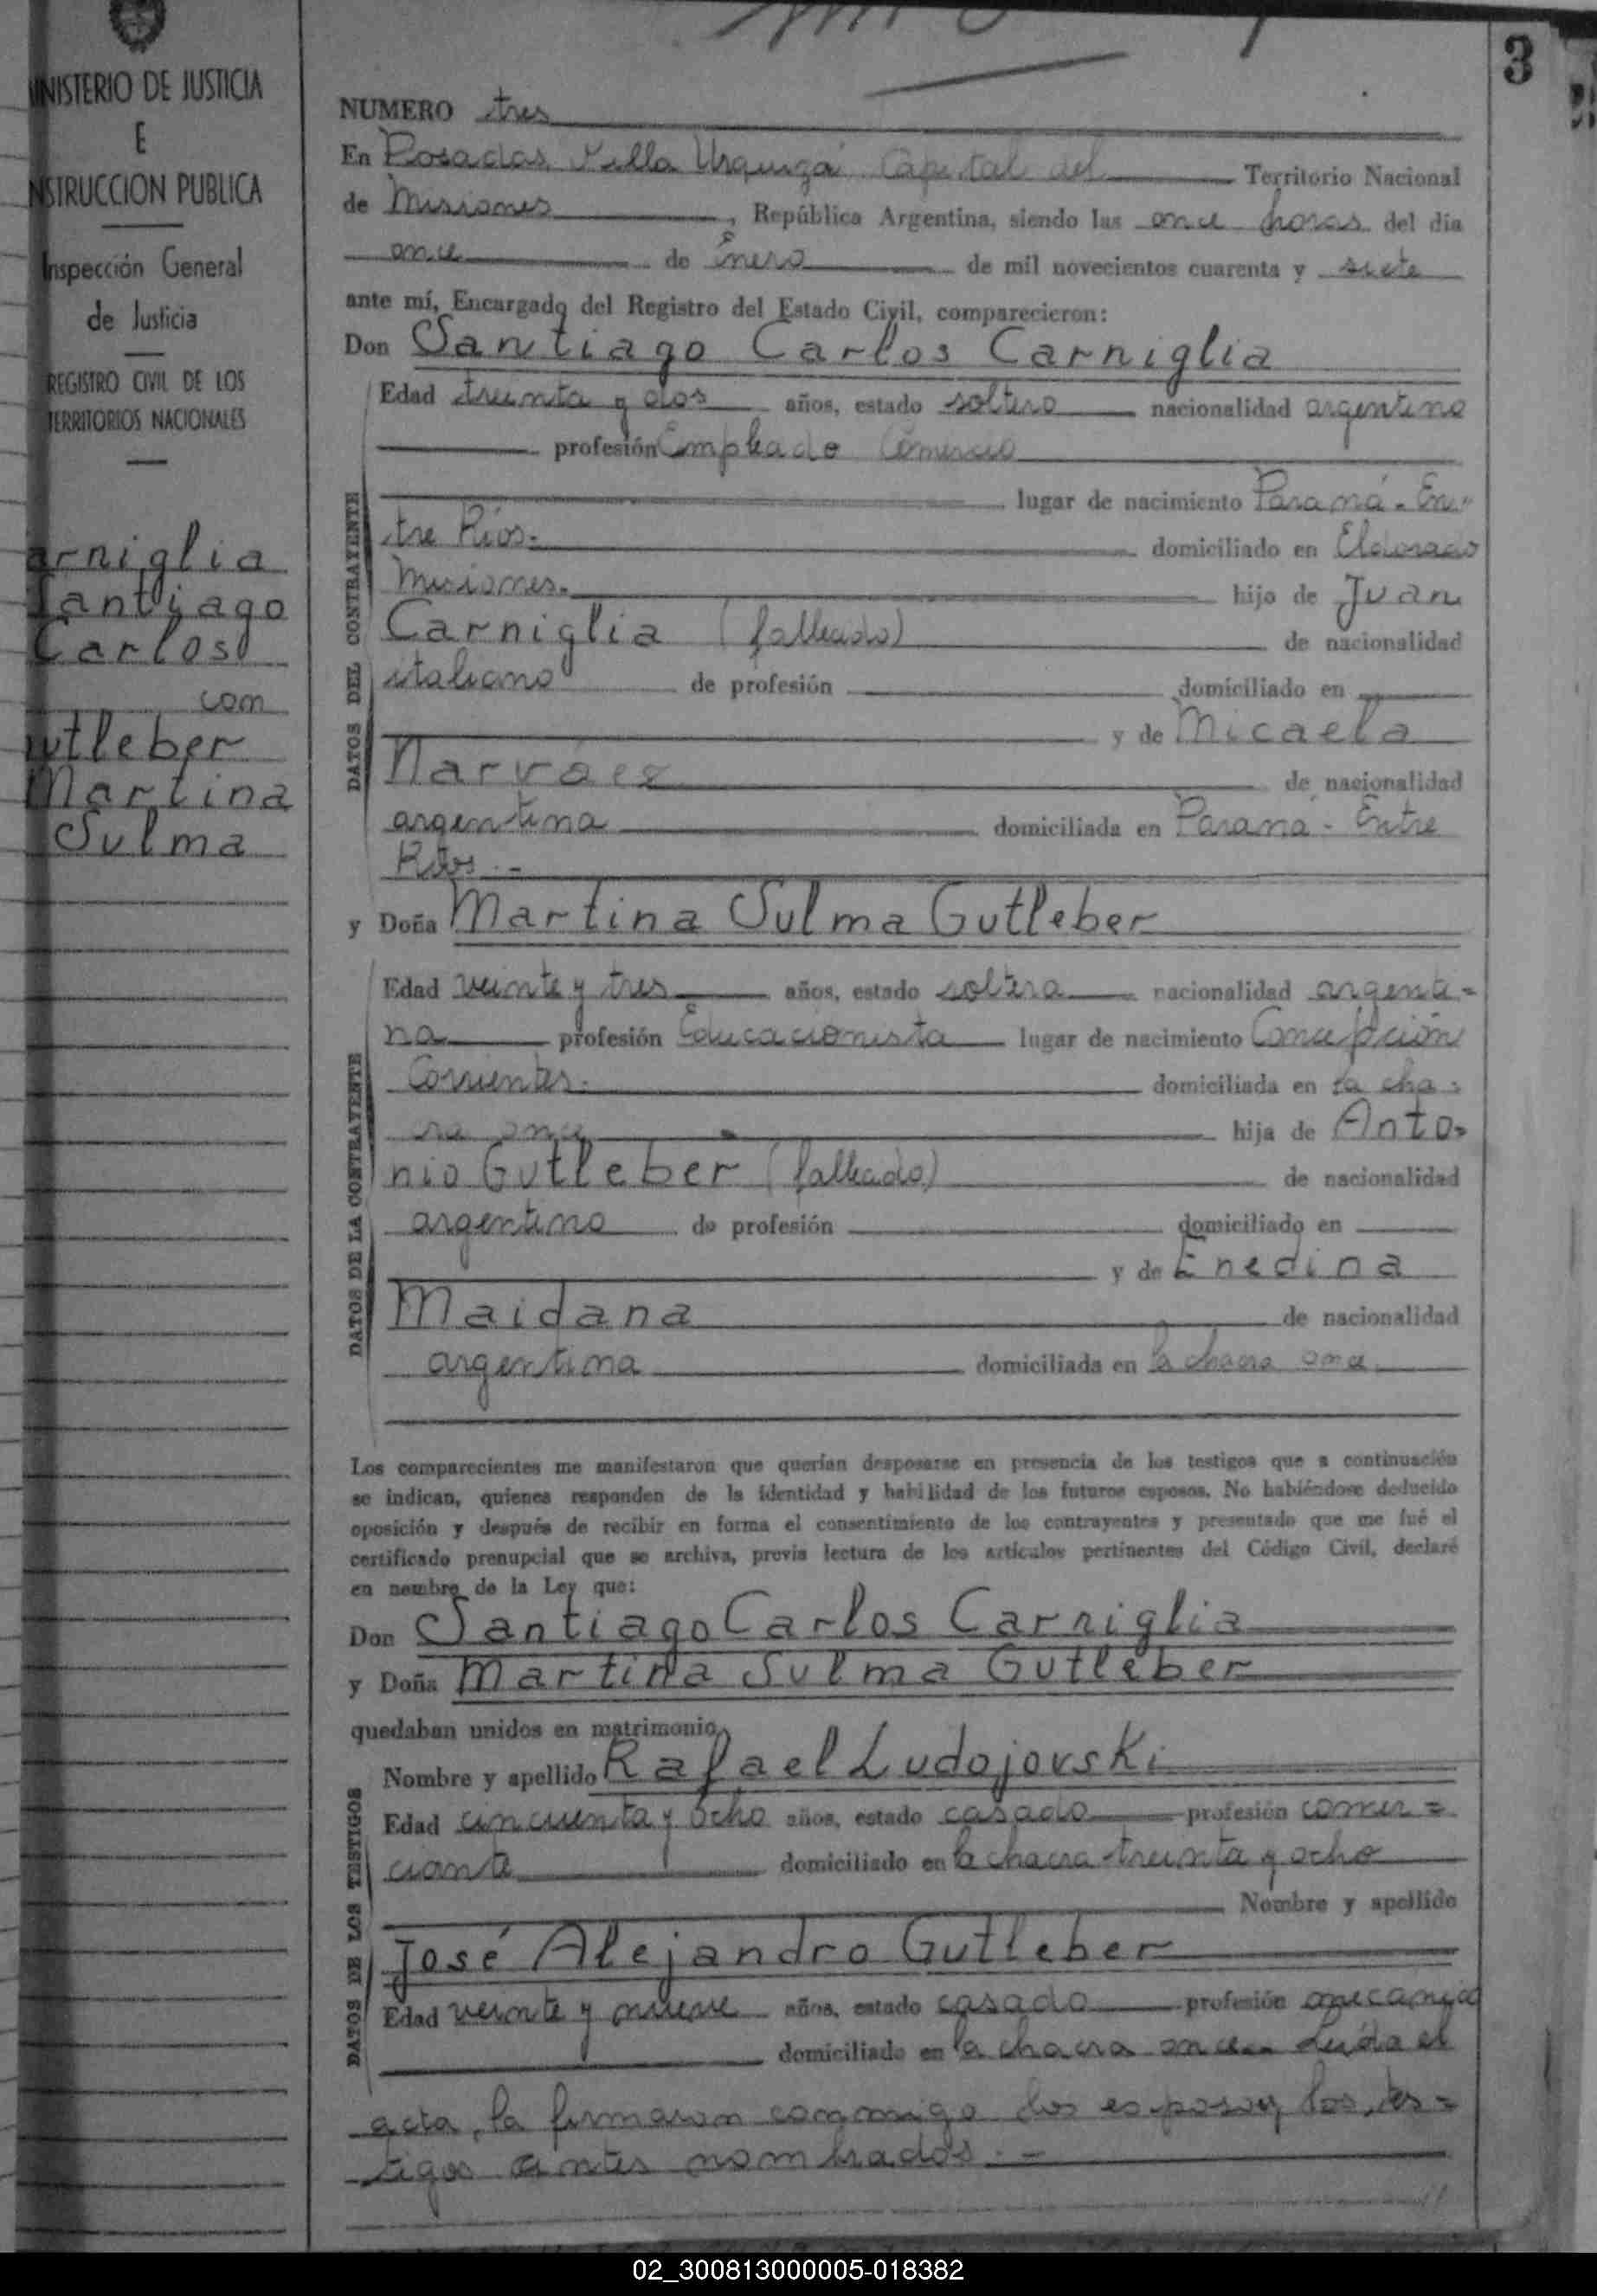 MINISTERIO DE JUSTICIA
E
INSTRUCCION PUBLICA
Inspección General
de Justicia
REGISTRO CIVIL DE LOS
TERRITORIOS NACIONALES
arniglia
Santiago
Carlos
con
utleber
Martina
Sulma
3
NUMERO tres
En Posadas Villa Urquiza Capital del Territorio Nacional
de Misiones, República Argentina, siendo las once horas del día
once de Enero de mil novecientos cuarenta y siete
ante mí, Encargado del Registro del Estado Civil, comparecieron:
Don Santiago Carlos Carniglia
Edad treinta y dos años, estado soltero nacionalidad argentino
profesión Empleado Comercio
lugar de nacimiento Paraná - En-
tre Ríos.- domiciliado en Eldorado
Misiones.- hijo de Juan
Carniglia (fallecido) de nacionalidad
italiano de profesión domiciliado en
y de Micaela
Narváez de nacionalidad
argentina domiciliada en Paraná - Entre
Ríos.-
y Doña Martina Sulma Gutleber
Edad veinte y tres años, estado soltera nacionalidad argenti=
na profesión Educacionista lugar de nacimiento Concepción
Corrientes.- domiciliada en la cha-
cra once hija de Anto=
nio Gutleber (fallecido) de nacionalidad
argentino de profesión domiciliado en
y de Enedina
Maidana de nacionalidad
argentina domiciliada en la chacra once
DATOS DEL CONTRAYENTE
DATOS DE LA CONTRAYENTE
Los comparecientes me manifestaron que querían desposarse en presencia de los testigos que a continuación
se indican, quienes responden de la identidad y habilidad de los futuros esposos. No habiéndose deducido
oposición y después de recibir en forma el consentimiento de los contrayentes y presentado que me fué el
certificado prenupcial que se archiva, previa lectura de los artículos pertinentes del Código Civil, declaré
en nombre de la Ley que:
Don Santiago Carlos Carniglia
y Doña Martina Sulma Gutleber
quedaban unidos en matrimonio,
Nombre y apellido Rafael Ludojovski
Edad cincuenta y ocho años, estado casado profesión comer=
ciante domiciliado en la chacra treinta y ocho
Nombre y apellido
José Alejandro Gutleber
Edad veinte y nueve años, estado casado profesión mecanico
domiciliado en la chacra once.- Leída el
DATOS DE LOS TESTIGOS
acta, la firmaron conmigo los esposos y los tes=
tigos antes nombrados.-
02_300813000005-018382